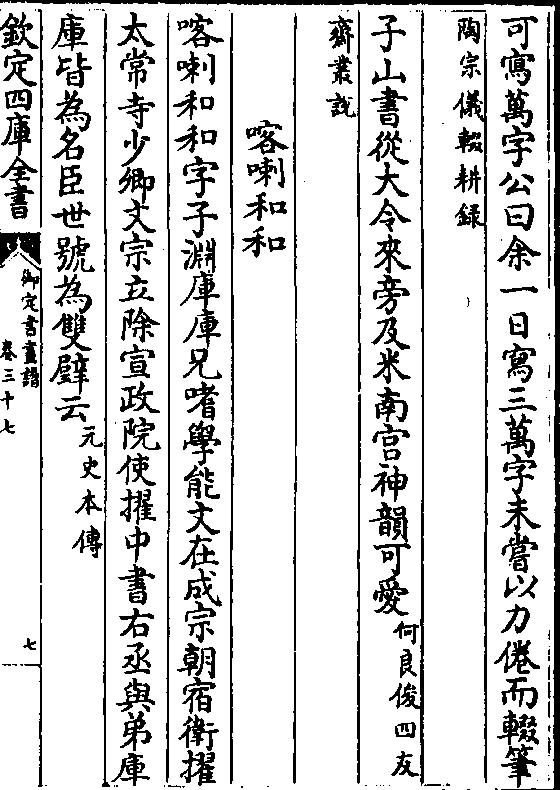 可寫萬字公曰余一日寫三萬字未嘗以力倦而輟筆
陶宗儀輟耕録
子山書從大令來旁及米南宫神韻可愛何良俊四友
齋叢說
喀喇和和
喀喇和和字子淵庫庫兄嗜學能文在成宗朝宿衛擢
太常寺少卿文宗立除宣政院使擢中書右丞與弟庫
庫皆為名臣世號為雙璧云元史本傳
欽定四庫全書
御定書畫譜
卷三十七
七